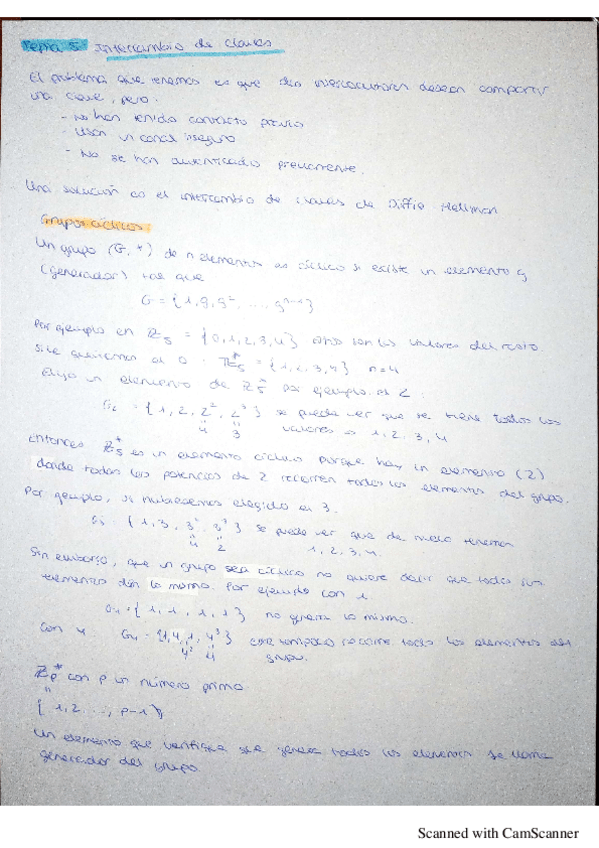 Tema 5: Intercambio de claves
El problema que tenemos es que dos interlocutores desean compartir
una clave, pero:
- No han tenido contacto previo
- Usan un canal inseguro
- No se han autenticado previamente.
Una solución es el intercambio de claves de Diffie Hellman
Grupos cíclicos
Un grupo (G, *) de n elementos es cíclico si existe un elemento g
(generador) tal que
G = {1, g, g², ..., gⁿ⁻¹}
Por ejemplo en ℤ₅ = {0, 1, 2, 3, 4} estos son los valores del resto
Si le quitamos el 0 · ℤ₅* = {1, 2, 3, 4} n=4
Elijo un elemento de ℤ₅* por ejemplo el 2.
G₂ = {1, 2, 2², 2³} se puede ver que se tiene todos los
4 3 valores → 1, 2, 3, 4
Entonces ℤ₅* es un elemento cíclico porque hay un elemento (2)
donde todas las potencias de 2 recorren todos los elementos del grupo.
Por ejemplo, si hubiésemos elegido el 3.
G₃ {1, 3, 3², 3³} se puede ver que de nuevo tenemos
4 2 1, 2, 3, 4.
Sin embargo, que un grupo sea cíclico no quiere decir que todos sus
elementos den lo mismo. Por ejemplo con 1
G₁ = {1, 1, 1, 1} no genera lo mismo.
Con 4 G₄ = {1, 4, 1, 4³} este tampoco recorre todo los elementos del
4² 4 grupo.
ℤp* con p un número primo
{1, 2 ..., p-1}
Un elemento que verifique que genera todos los elementos se llama
generador del grupo.
Scanned with CamScanner